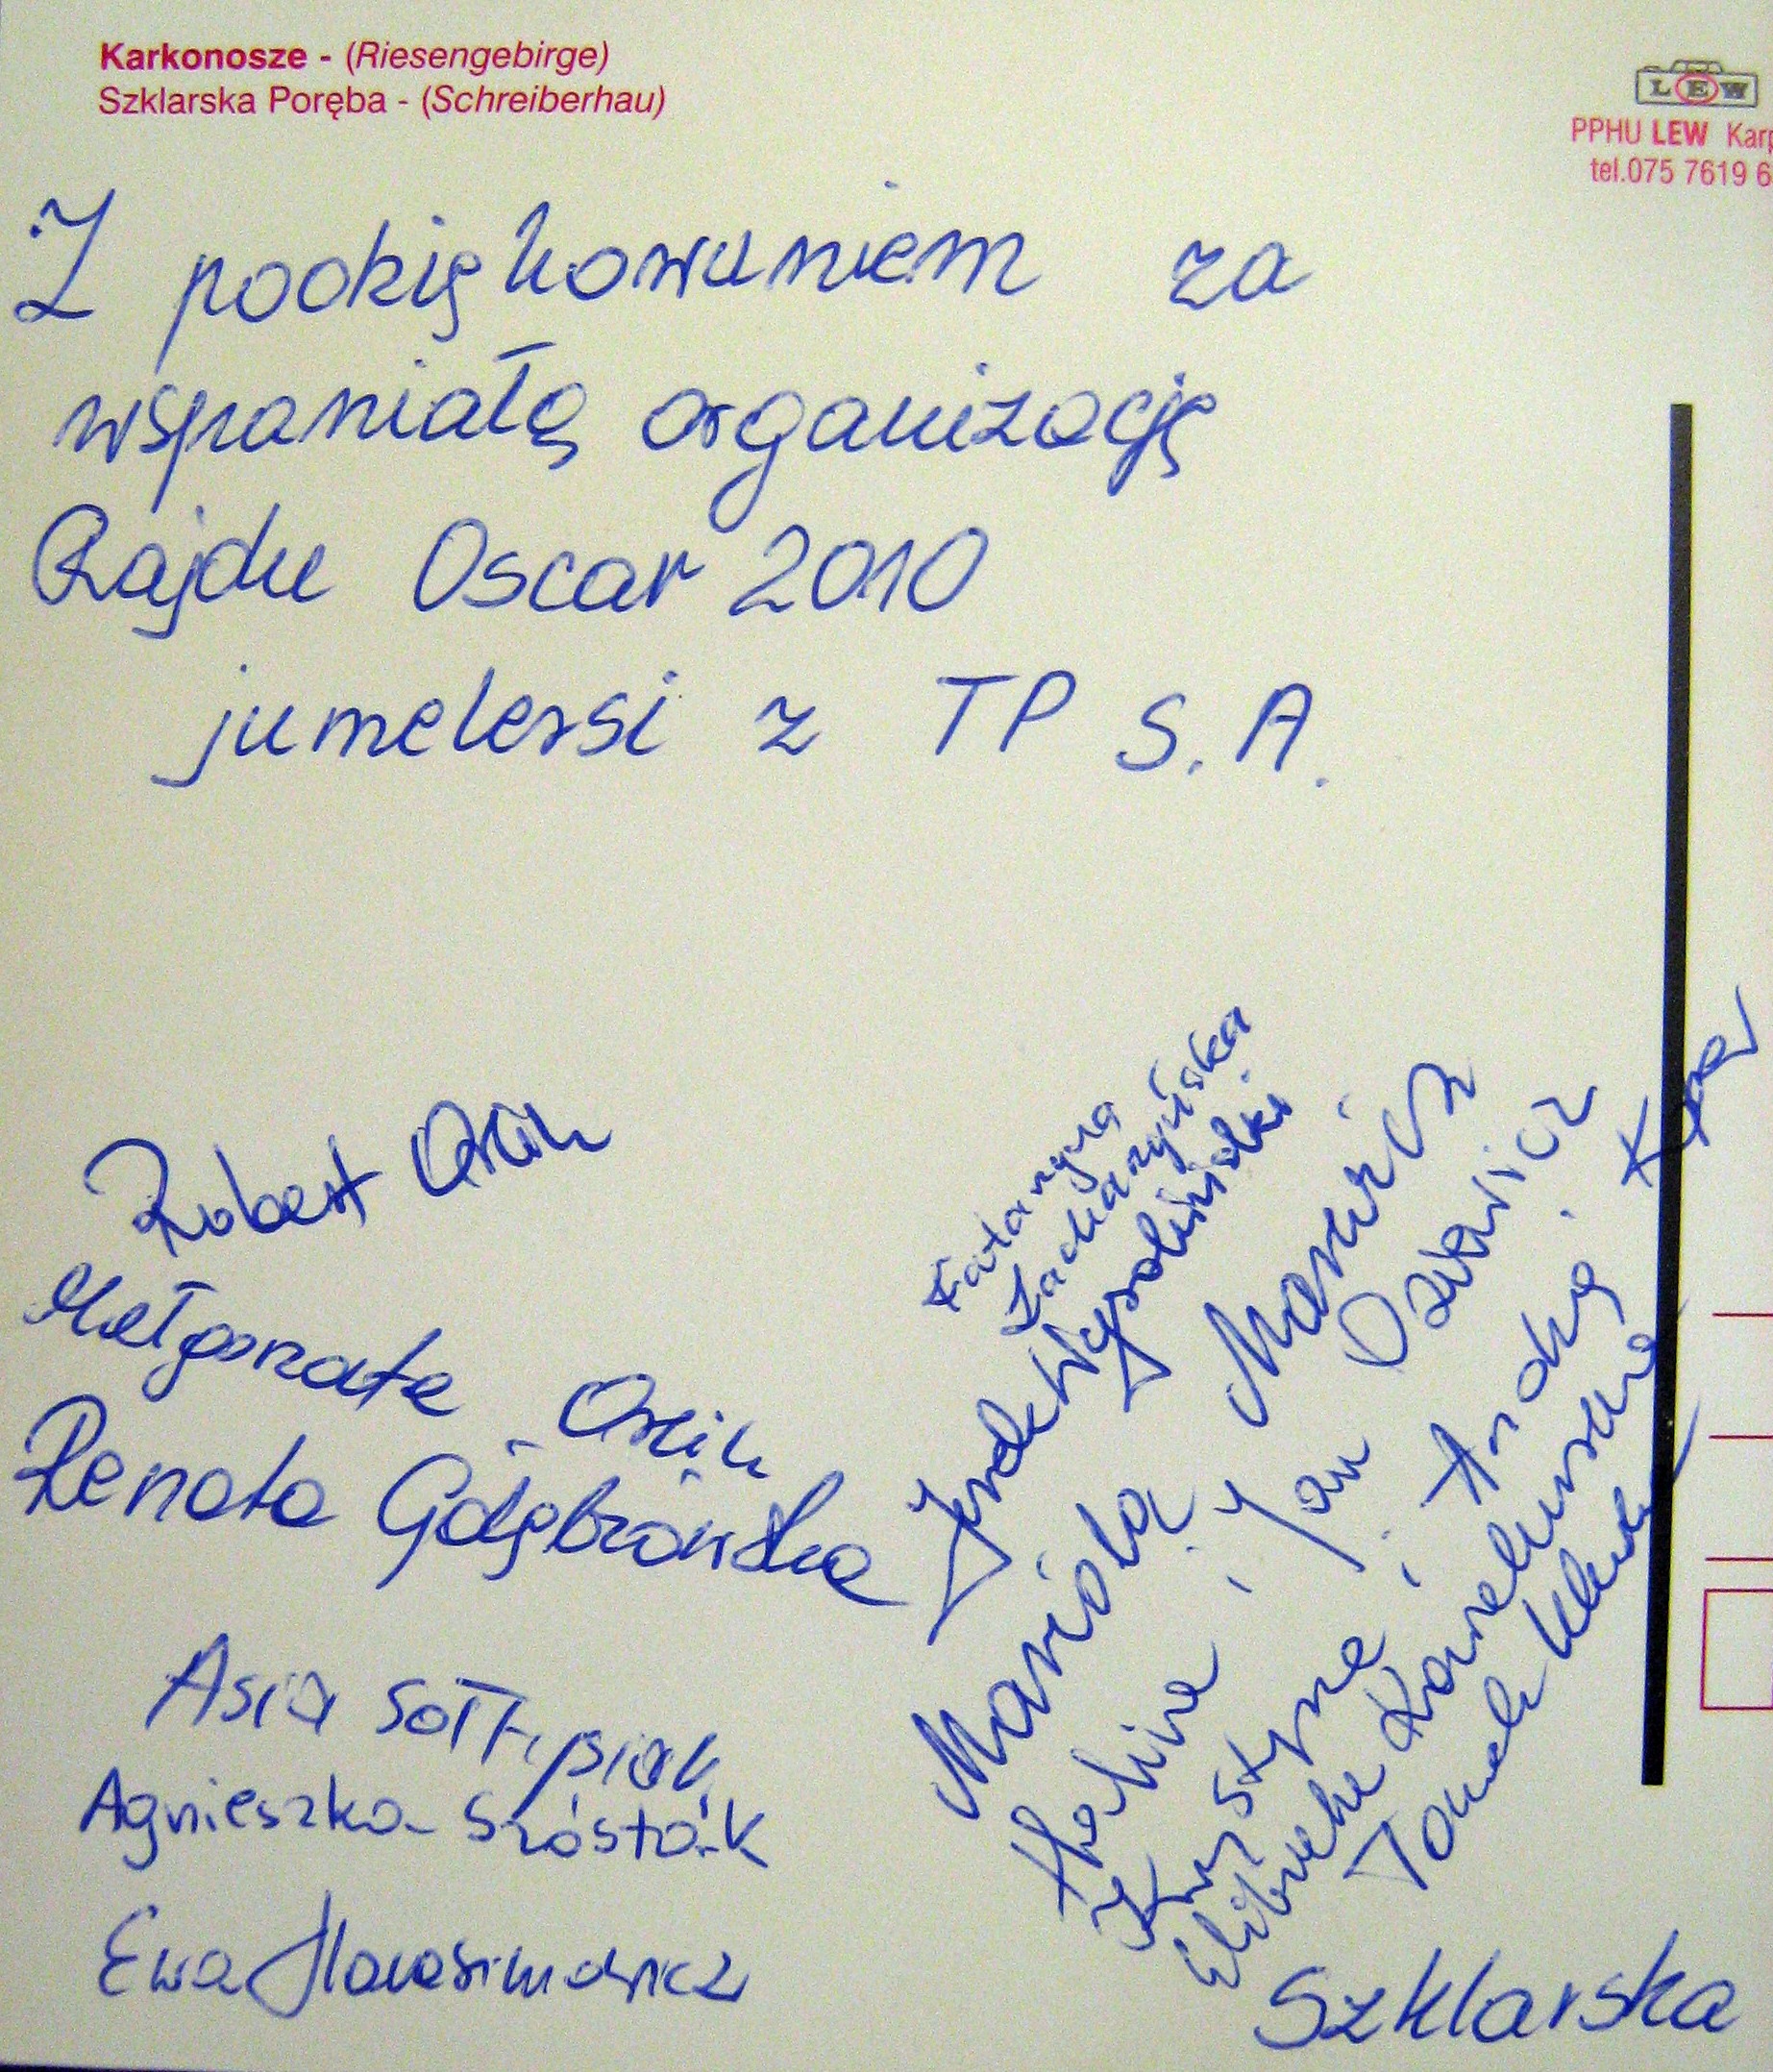 Karkonosze - (Riesengebirge)
Szklarska Poręba - (Schreiberhau)
LEW
PPHU LEW Karp
tel.075 7619 6
Z podziękowaniem za
wspaniałą organizację
Rajdu Oscar 2010
jumelersi z TP S.A.
Robert Orlik
Małgorzata Orlik
Renata Gołębiowska
Asia Sołtysiak
Agnieszka Szósta.k
Ewa Harasimowicz
Katarzyna
Zacharzyńska
Jacek
Mariola
Halina, Jan
Krystyna, Andrzej
Elżbieta
Tomek
Szklarska